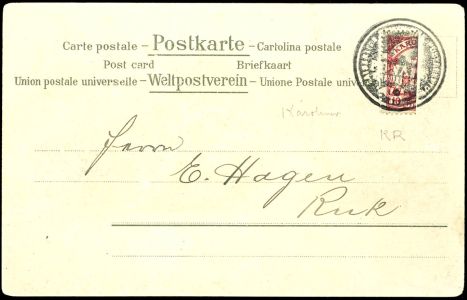 Carte postale – Postkarte – Cartolina postale
Post card Briefkaart
Union postale universelle – Weltpostverein – Unione Postale univ
KR
Herrn
E. Hagen
Ruk